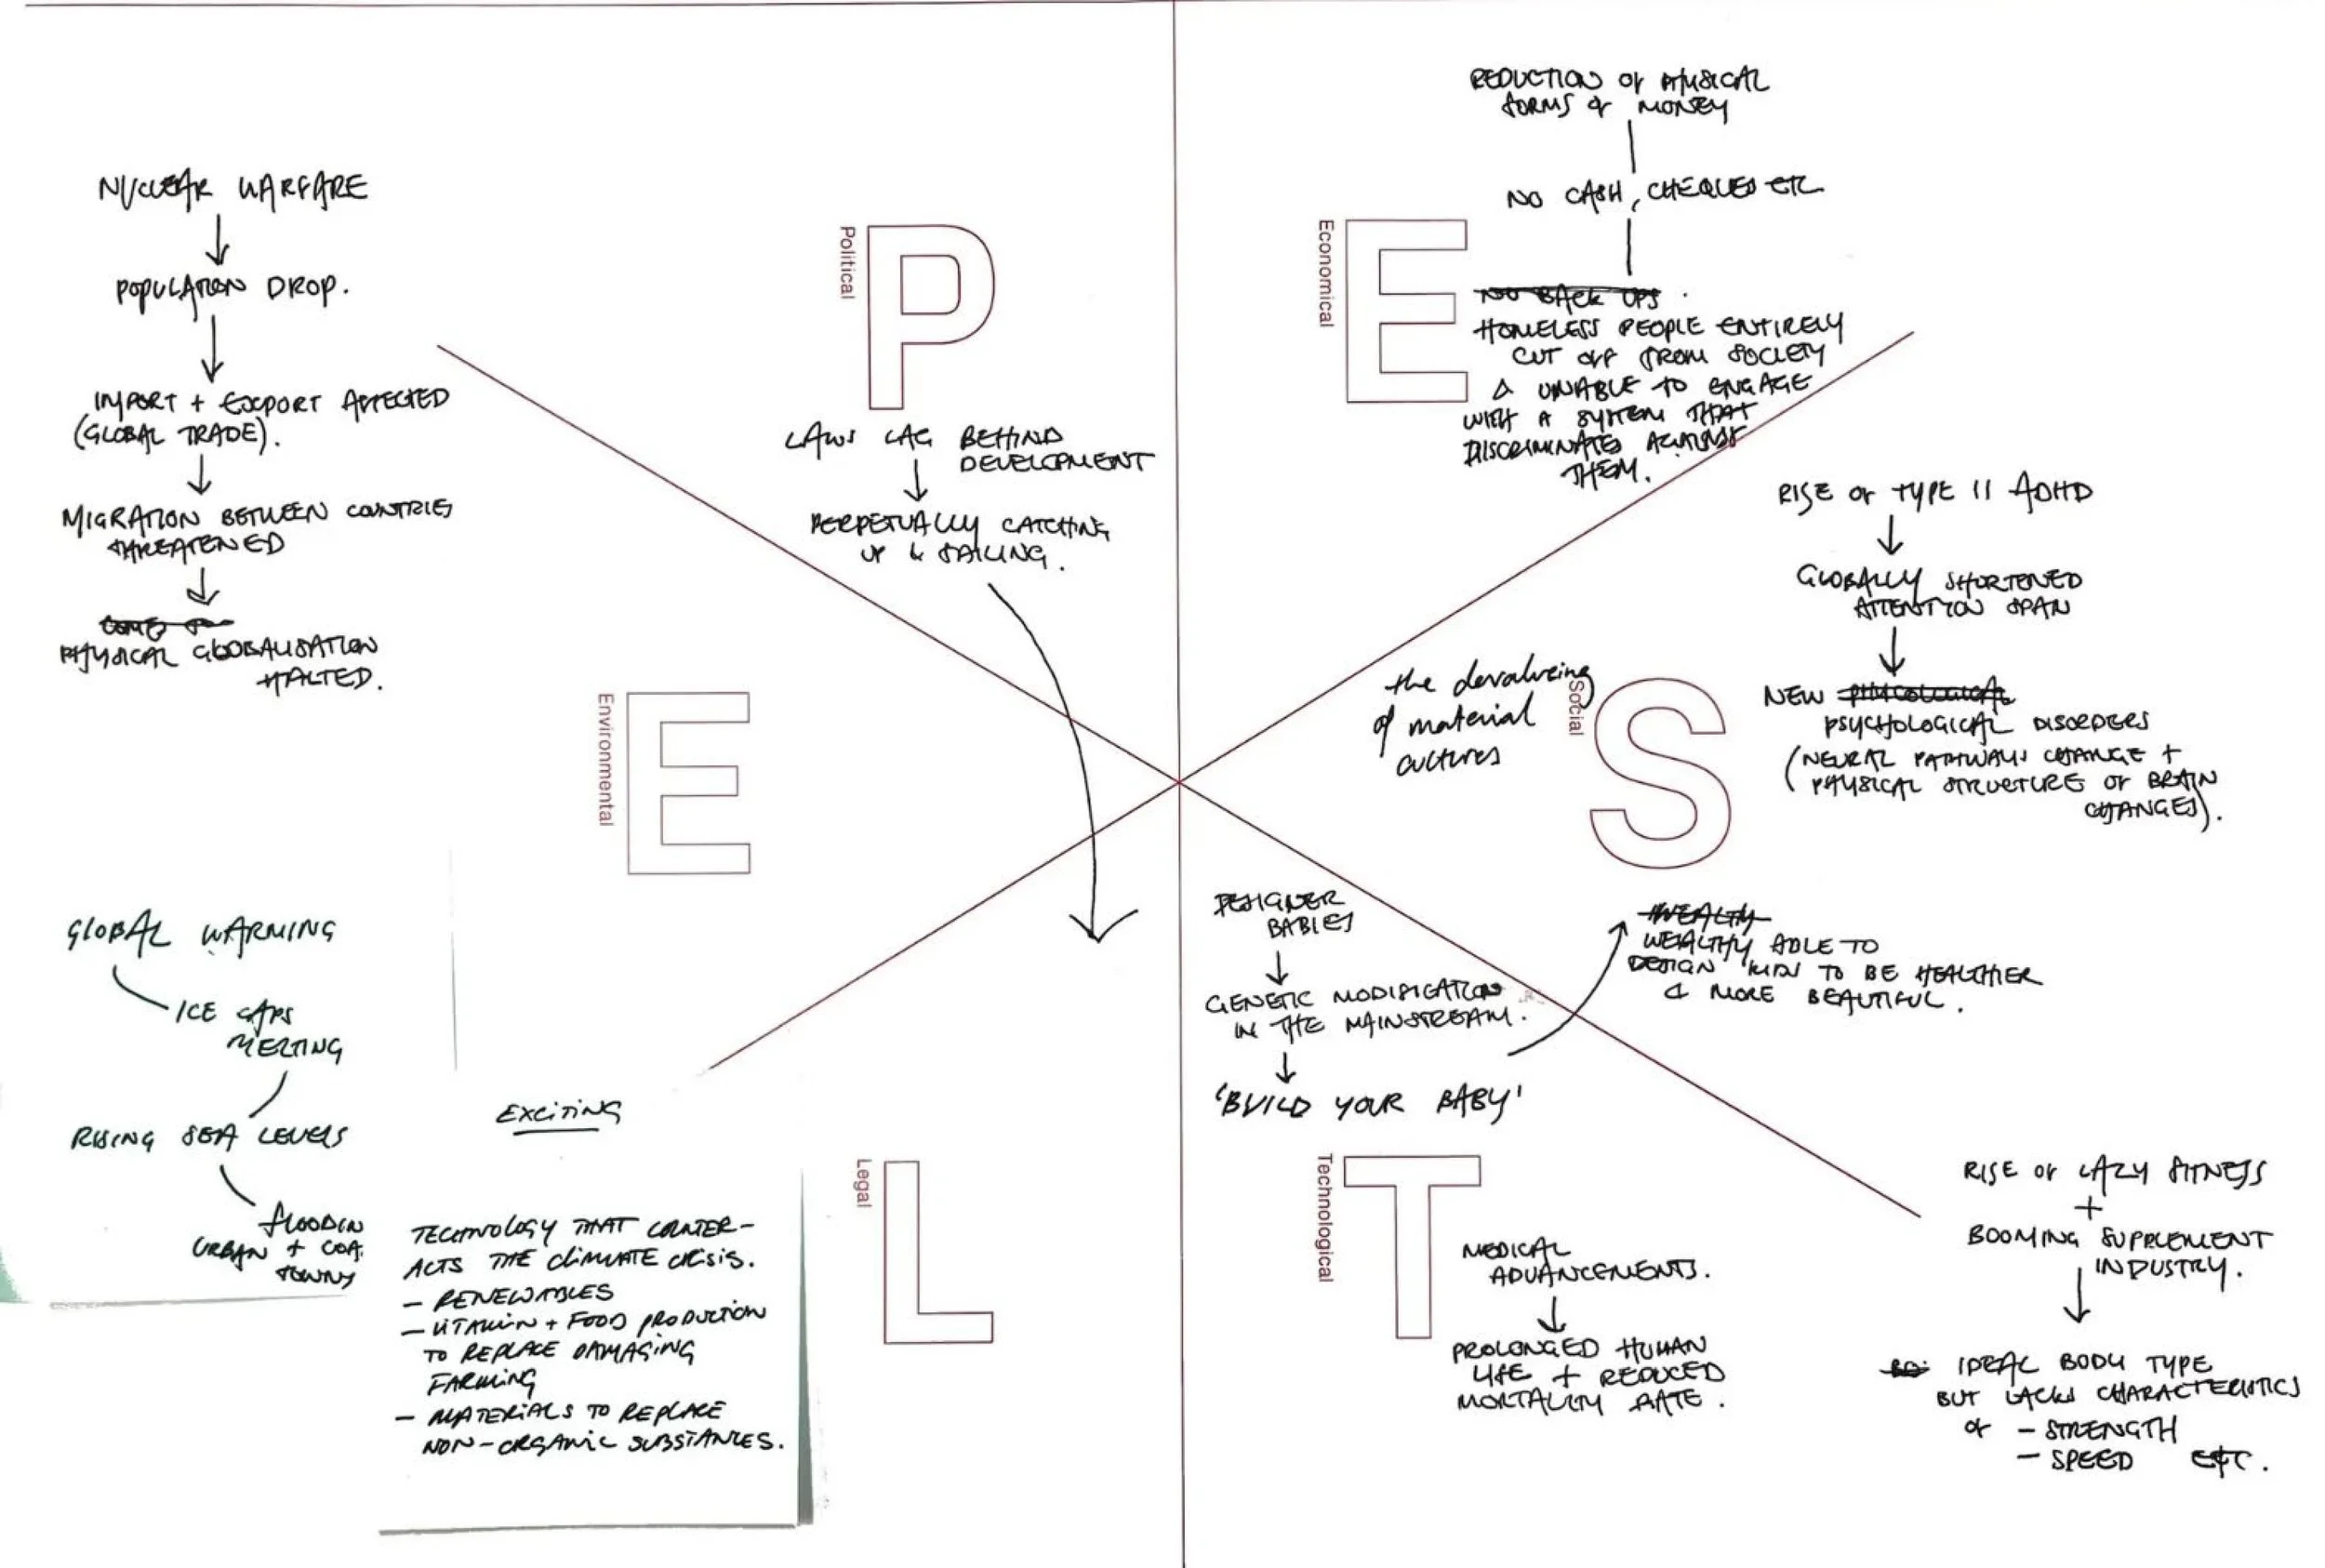 NUCLEAR WARFARE
POPULATION DROP.
IMPORT + EXPORT AFFECTED
(GLOBAL TRADE).
MIGRATION BETWEEN COUNTRIES
THREATENED
PHYSICAL GLOBALISATION
HALTED.
Political
P
LAWS LAG BEHIND
DEVELOPMENT
PERPETUALLY CATCHING
UP & FAILING.
REDUCTION OF PHYSICAL
FORMS OF MONEY
NO CASH, CHEQUES ETC
Economical
E
NO BACK UPS.
HOMELESS PEOPLE ENTIRELY
CUT OFF FROM SOCIETY
& UNABLE TO ENGAGE
WITH A SYSTEM THAT
DISCRIMINATES AGAINST
THEM.
RISE OF TYPE II ADHD
GLOBALLY SHORTENED
ATTENTION SPAN
NEW
PSYCHOLOGICAL DISORDERS
(NEURAL PATHWAYS CHANGE +
PHYSICAL STRUCTURE OF BRAIN
CHANGES).
the devalueing
of material
cultures
Social
S
Environmental
E
GLOBAL WARMING
ICE CAPS
MELTING
RISING SEA LEVELS
FLOODIN
URBAN + COA
TOWNS
EXCITING
TECHNOLOGY THAT COUNTER-
ACTS THE CLIMATE CRISIS.
- RENEWABLES
- VITAMIN + FOOD PRODUCTION
TO REPLACE DAMAGING
FARMING
- MATERIALS TO REPLACE
NON-ORGANIC SUBSTANCES.
Legal
L
DESIGNER
BABIES
GENETIC MODIFICATION
IN THE MAINSTREAM.
'BUILD YOUR BABY'
WEALTHY
WEALTHY ABLE TO
DESIGN KIDS TO BE HEALTHIER
& MORE BEAUTIFUL.
Technological
T
MEDICAL
ADVANCEMENTS.
PROLONGED HUMAN
LIFE + REDUCED
MORTALITY RATE.
RISE OF LAZY FITNESS
+
BOOMING SUPPLEMENT
INDUSTRY.
IDEAL BODY TYPE
BUT LACKS CHARACTERISTICS
OF - STRENGTH
- SPEED ETC.